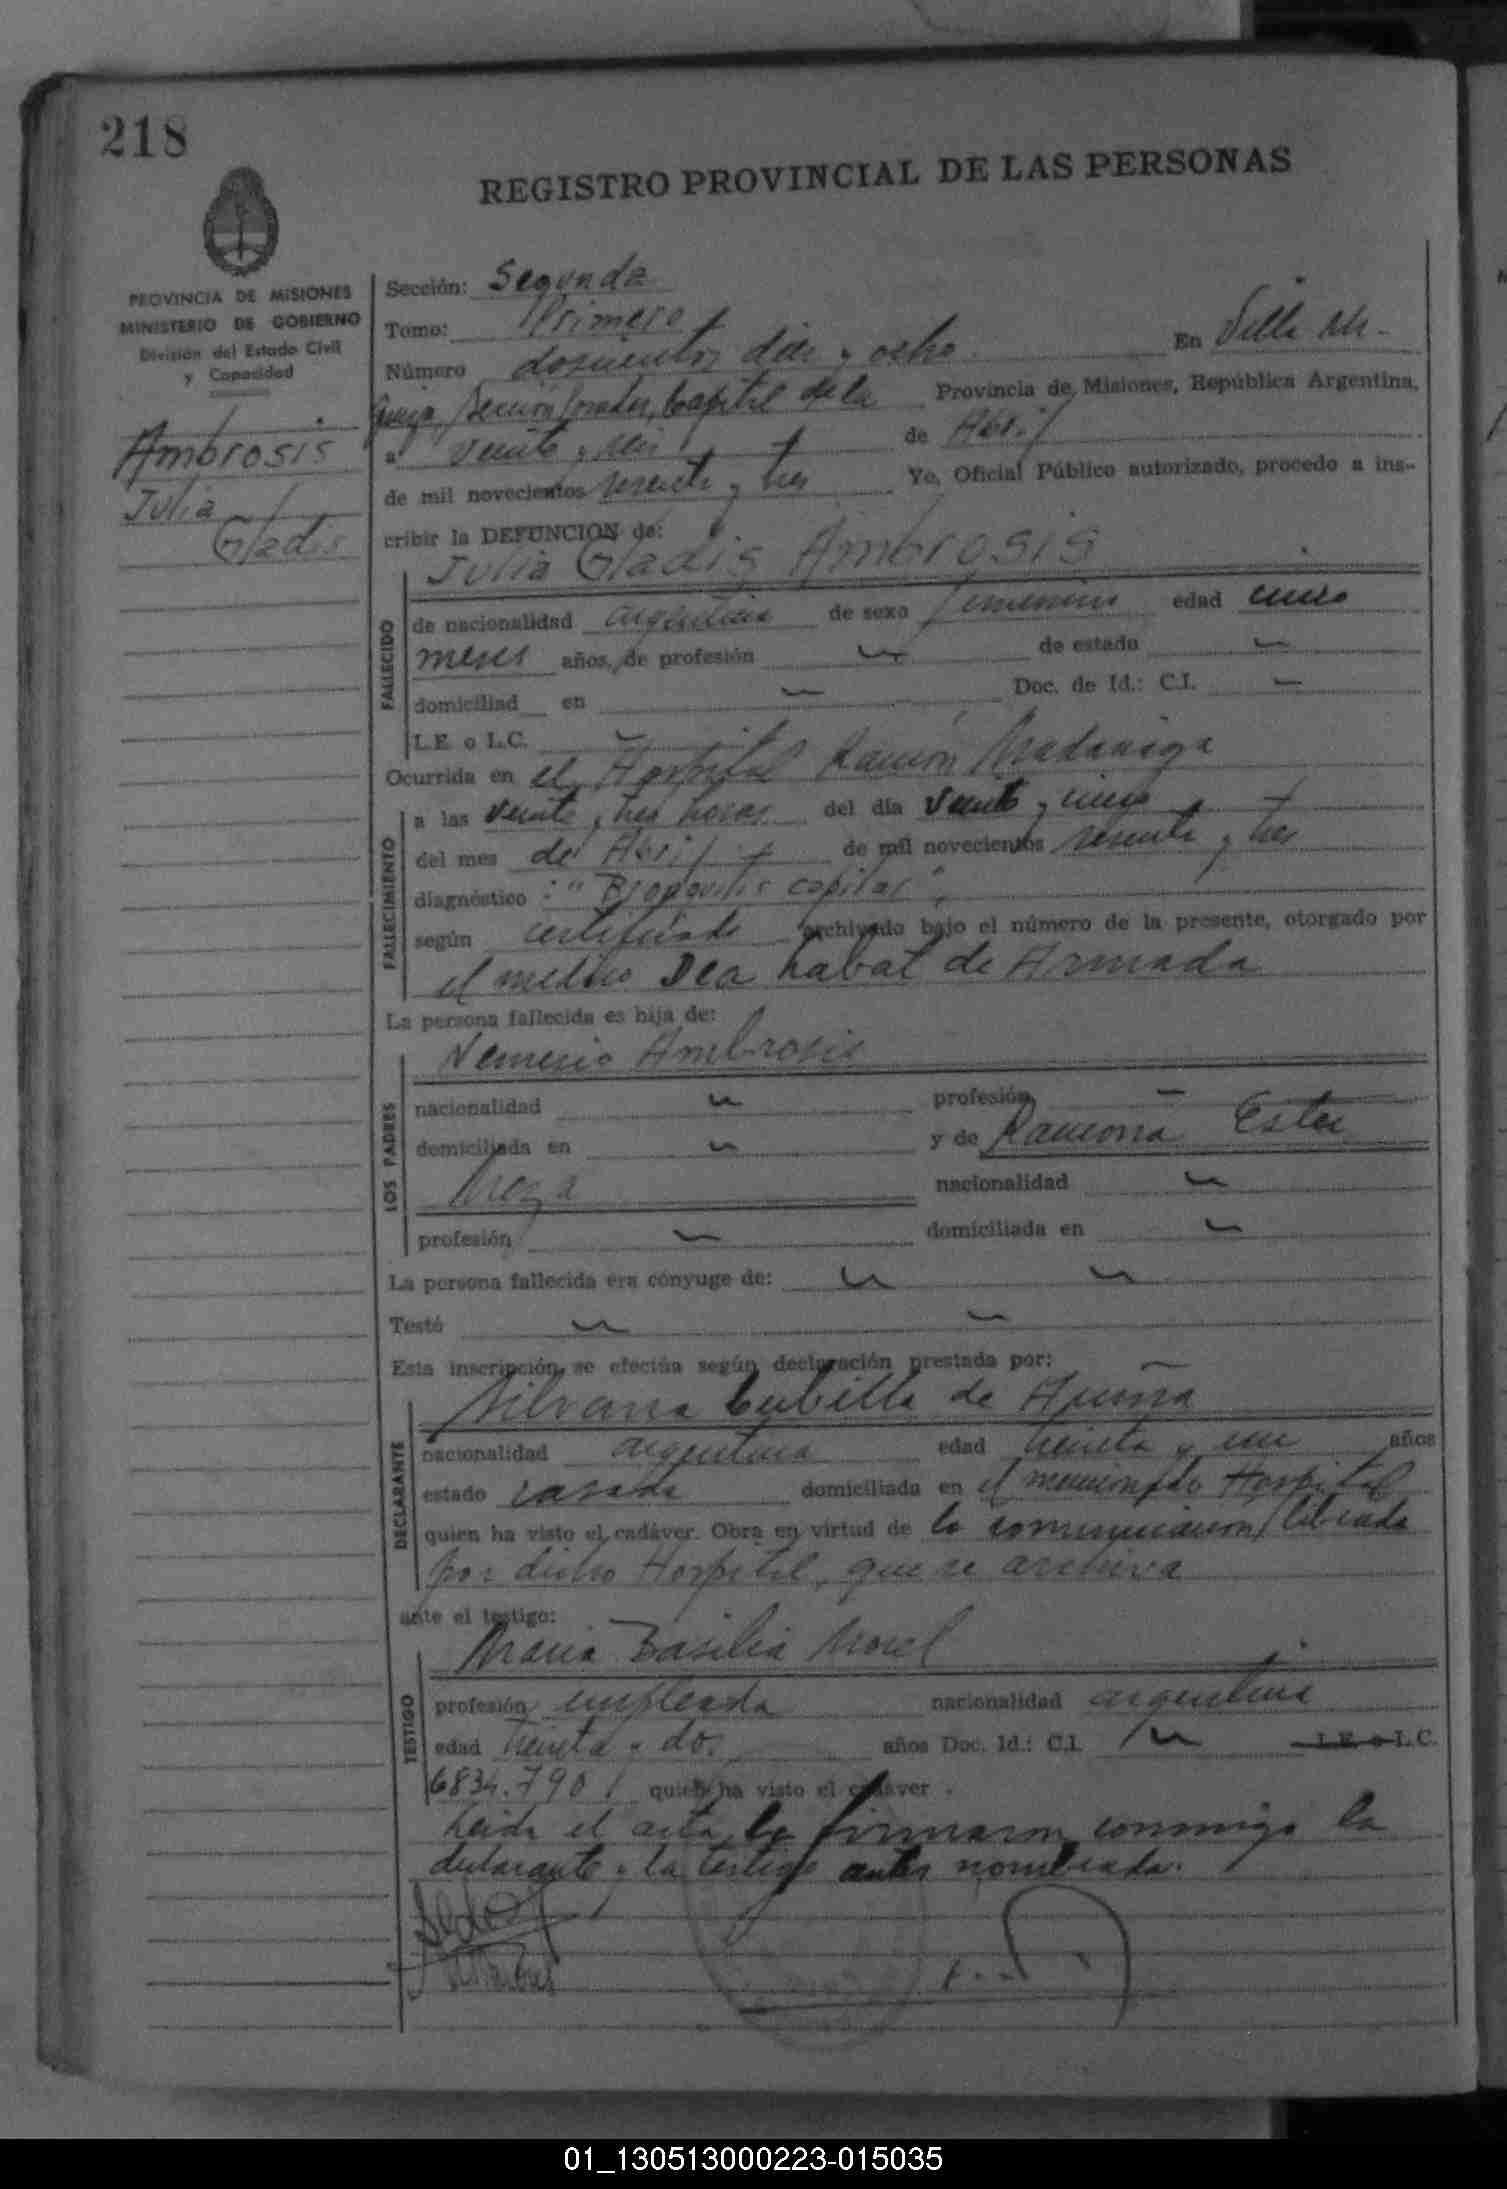 218
REGISTRO PROVINCIAL DE LAS PERSONAS
PROVINCIA DE MISIONES
MINISTERIO DE GOBIERNO
División del Estado Civil
y Capacidad
Ambrosis
Julia
Gladis
Sección: Segunda
Tomo: Primero
Número doscientos diez y ocho En Villa
Sección Posadas, Capital de la Provincia de Misiones, República Argentina,
a veinte y seis de Abril
de mil novecientos sesenta y tres Yo, Oficial Público autorizado, procedo a ins-
cribir la DEFUNCION de:
Julia Gladis Ambrosis
FALLECIDO
de nacionalidad argentina de sexo femenino edad cinco
meses años, de profesión de estado
domiciliad en Doc. de Id.: C.I.
L.E. o L.C.
Ocurrida en el Hospital Ramón Madariaga
FALLECIMIENTO
a las veinte y tres horas del día veinte y cinco
del mes de Abril de mil novecientos sesenta y tres
diagnóstico : " capilar"
según certificado archivado bajo el número de la presente, otorgado por
el médico Dra Labat de Armada
La persona fallecida es hija de:
Nemesio Ambrosis
LOS PADRES
nacionalidad profesión
domiciliada en y de Ramona Ester
Meza nacionalidad
profesión domiciliada en
La persona fallecida era cónyuge de:
Testó
Esta inscripción se efectúa según declaración prestada por:
Silvana Cubilla de Acuña
DECLARANTE
nacionalidad argentina edad treinta y un años
estado casada domiciliada en el mencionado Hospital
quien ha visto el cadáver. Obra en virtud de la comunicación librada
por dicho Hospital, que se archiva
ante el testigo:
María Basilia Morel
TESTIGO
profesión empleada nacionalidad argentina
edad treinta y dos años Doc. Id.: C.I. L.E. o L.C.
6834.790 quien ha visto el cadáver .
Leida el acta la firmaron conmigo la
declarante y la testigo antes nombrada.
01_130513000223-015035